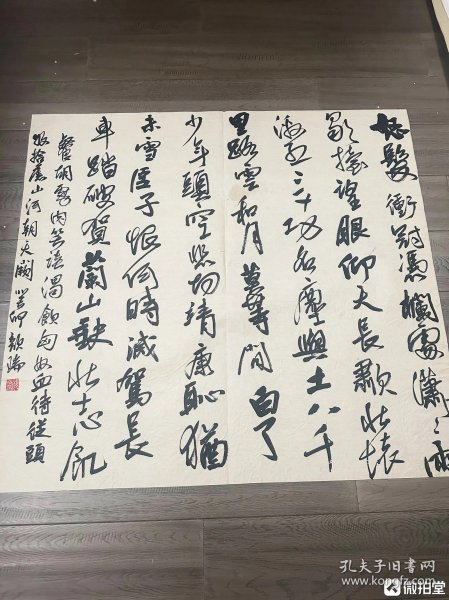 怒髮衝冠憑欄處瀟々雨
歇擡望眼仰天長歗壯懷
激烈三十功名塵與土八千
里路雲和月莫等閒白了
少年頭空悲切靖康恥猶
未雪臣子恨何時滅駕長
車踏破賀蘭山缺壯志飢
餐胡虜肉笑談渴飲匈奴血待從頭
收拾舊山河朝天闕
孔夫子旧书网
www.kongfz.com
微拍堂